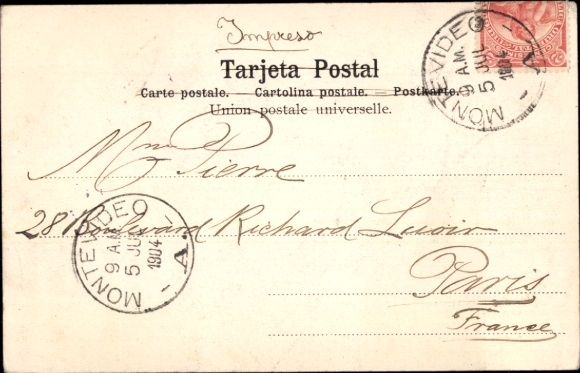 Impreso
Tarjeta Postal
Carte postale. — Cartolina postale. — Postkarte.
Union postale universelle.
MONTEVIDEO
9 A.M.
5 JUL
1904
Mme Pierre
28 Boulevard Richard Lenoir
Paris
France
MONTEVIDEO
9 A.M.
5 JUL
1904
A.